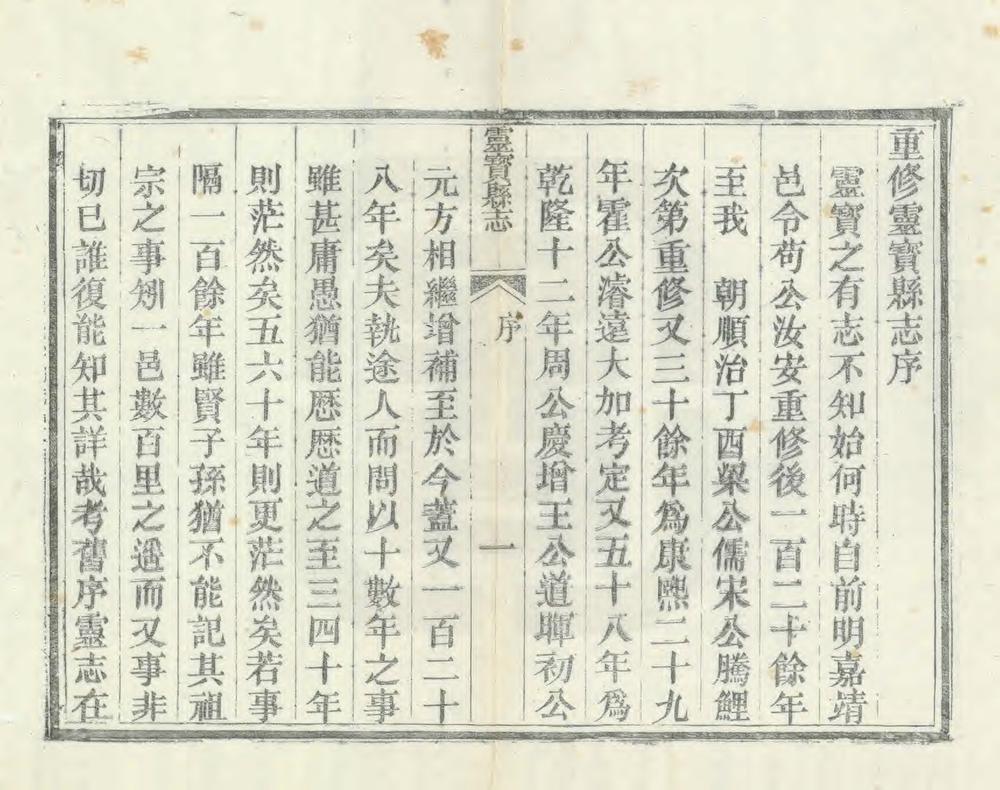 重修靈寶縣志序
靈寶之有志不知始何時自前明嘉靖
邑令苟公汝安重修後一百二十餘年
至我　朝順治丁酉梁公儒宋公騰鯉
次第重修又三十餘年爲康熙二十九
年霍公濬遠大加考定又五十八年爲
乾隆十二年周公慶增王公道暉初公
靈寶縣志　序　一
元方相繼增補至於今蓋又一百二十
八年矣夫執途人而問以十數年之事
雖甚庸愚猶能歷歷道之至三四十年
則茫然矣五六十年則更茫然矣若事
隔一百餘年雖賢子孫猶不能記其祖
宗之事矧一邑數百里之遙而又事非
切已誰復能知其詳哉考舊序靈志在